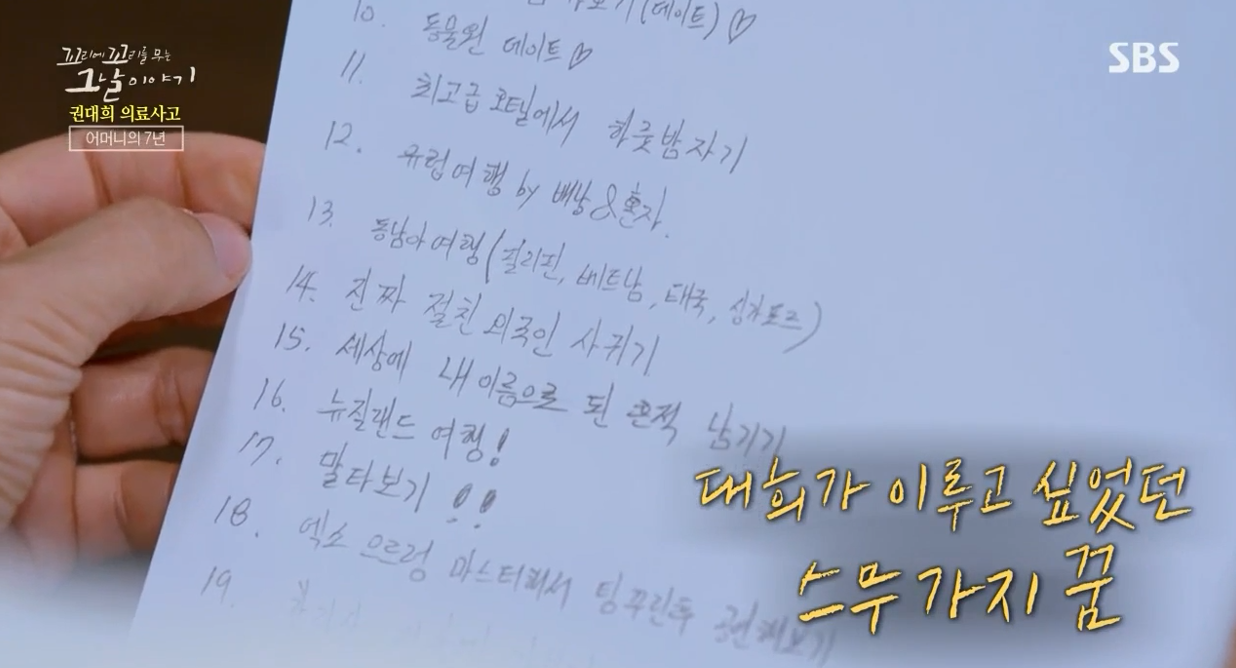 꼬리에 꼬리를 무는
그날 이야기
권대희 의료사고
어머니의 7년
SBS
보기(데이트)♡
10. 동물원 데이트♡
11. 최고급 호텔에서 하룻밤 자기
12. 유럽여행 by 배낭&혼자.
13. 동남아여행(필리핀, 베트남, 태국, 싱가포르)
14. 진짜 절친 외국인 사귀기
15. 세상에 내 이름으로 된 흔적 남기기
16. 뉴질랜드 여행!
17. 말타보기 !!
18. 엑소 으르렁 마스터해서
19.
대희가 이루고 싶었던
스무 가지 꿈